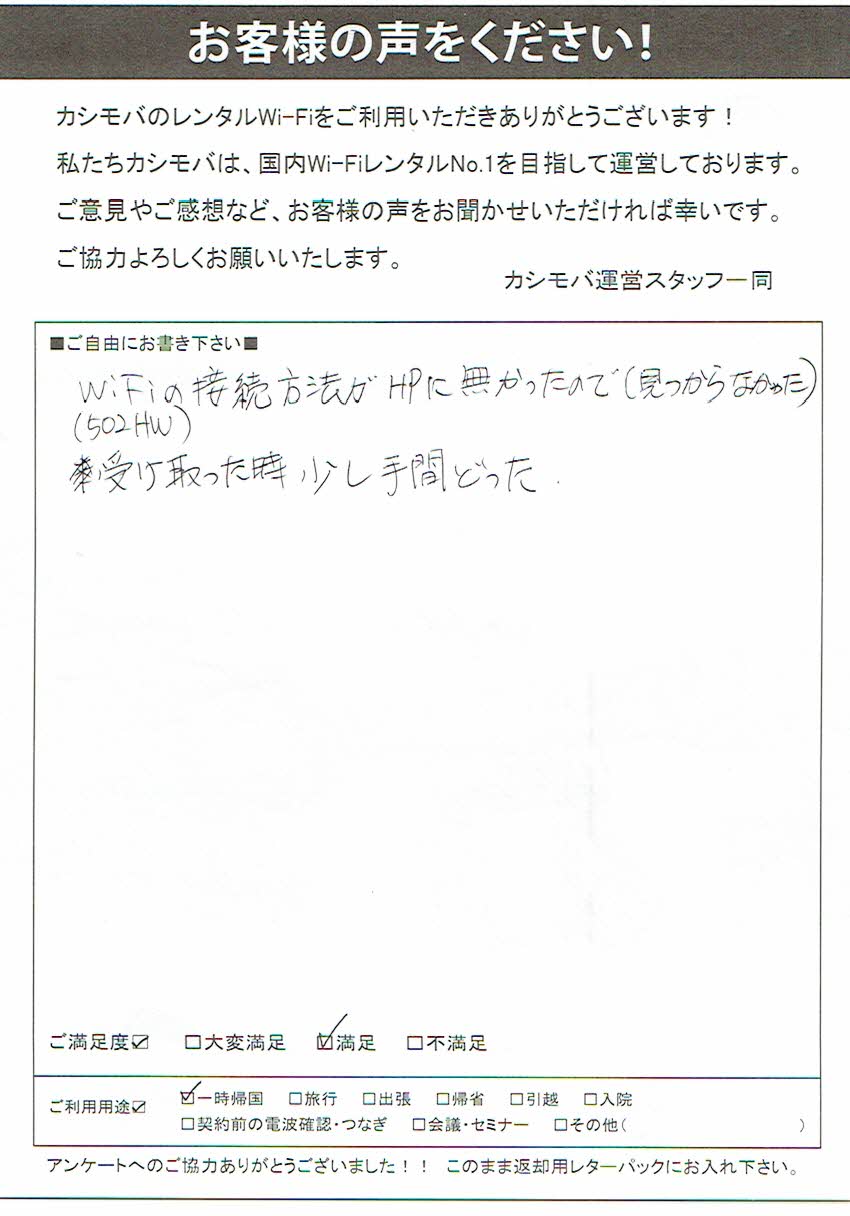 お客様の声をください!
カシモバのレンタルWi-Fiをご利用いただきありがとうございます！
私たちカシモバは、国内Wi-FiレンタルNo.1を目指して運営しております。
ご意見やご感想など、お客様の声をお聞かせいただければ幸いです。
ご協力よろしくお願いいたします。
カシモバ運営スタッフ一同
■ご自由にお書き下さい■
WiFiの接続方法がHPに無かったので(見つからなかった)
(502HW)
受け取った時少し手間どった.
ご満足度☑ □大変満足 ☑満足 □不満足
ご利用用途☑ ☑一時帰国 □旅行 □出張 □帰省 □引越 □入院
□契約前の電波確認・つなぎ □会議・セミナー □その他( )
アンケートへのご協力ありがとうございました！！ このまま返却用レターパックにお入れ下さい。